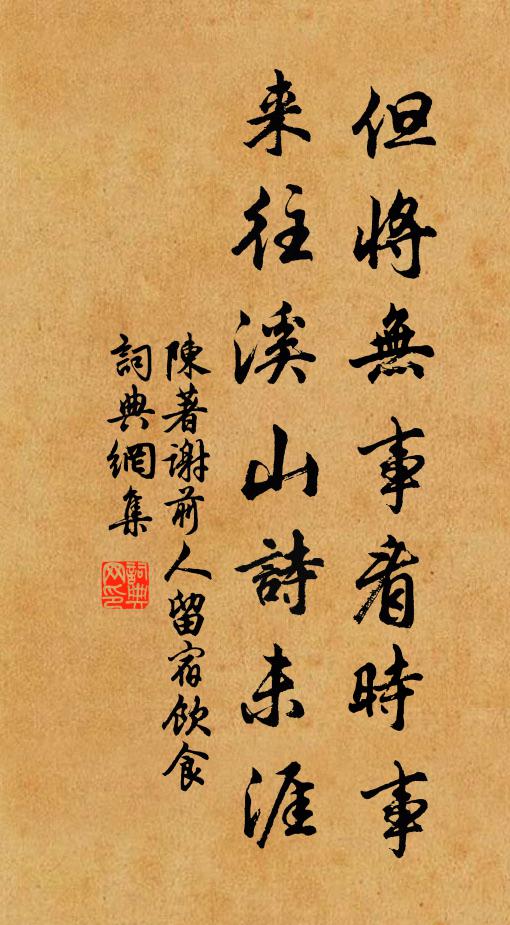 但將無事看時事
来往溪山詩未涯
陳著謝前人留宿飲食
詞典網集
詞典網印